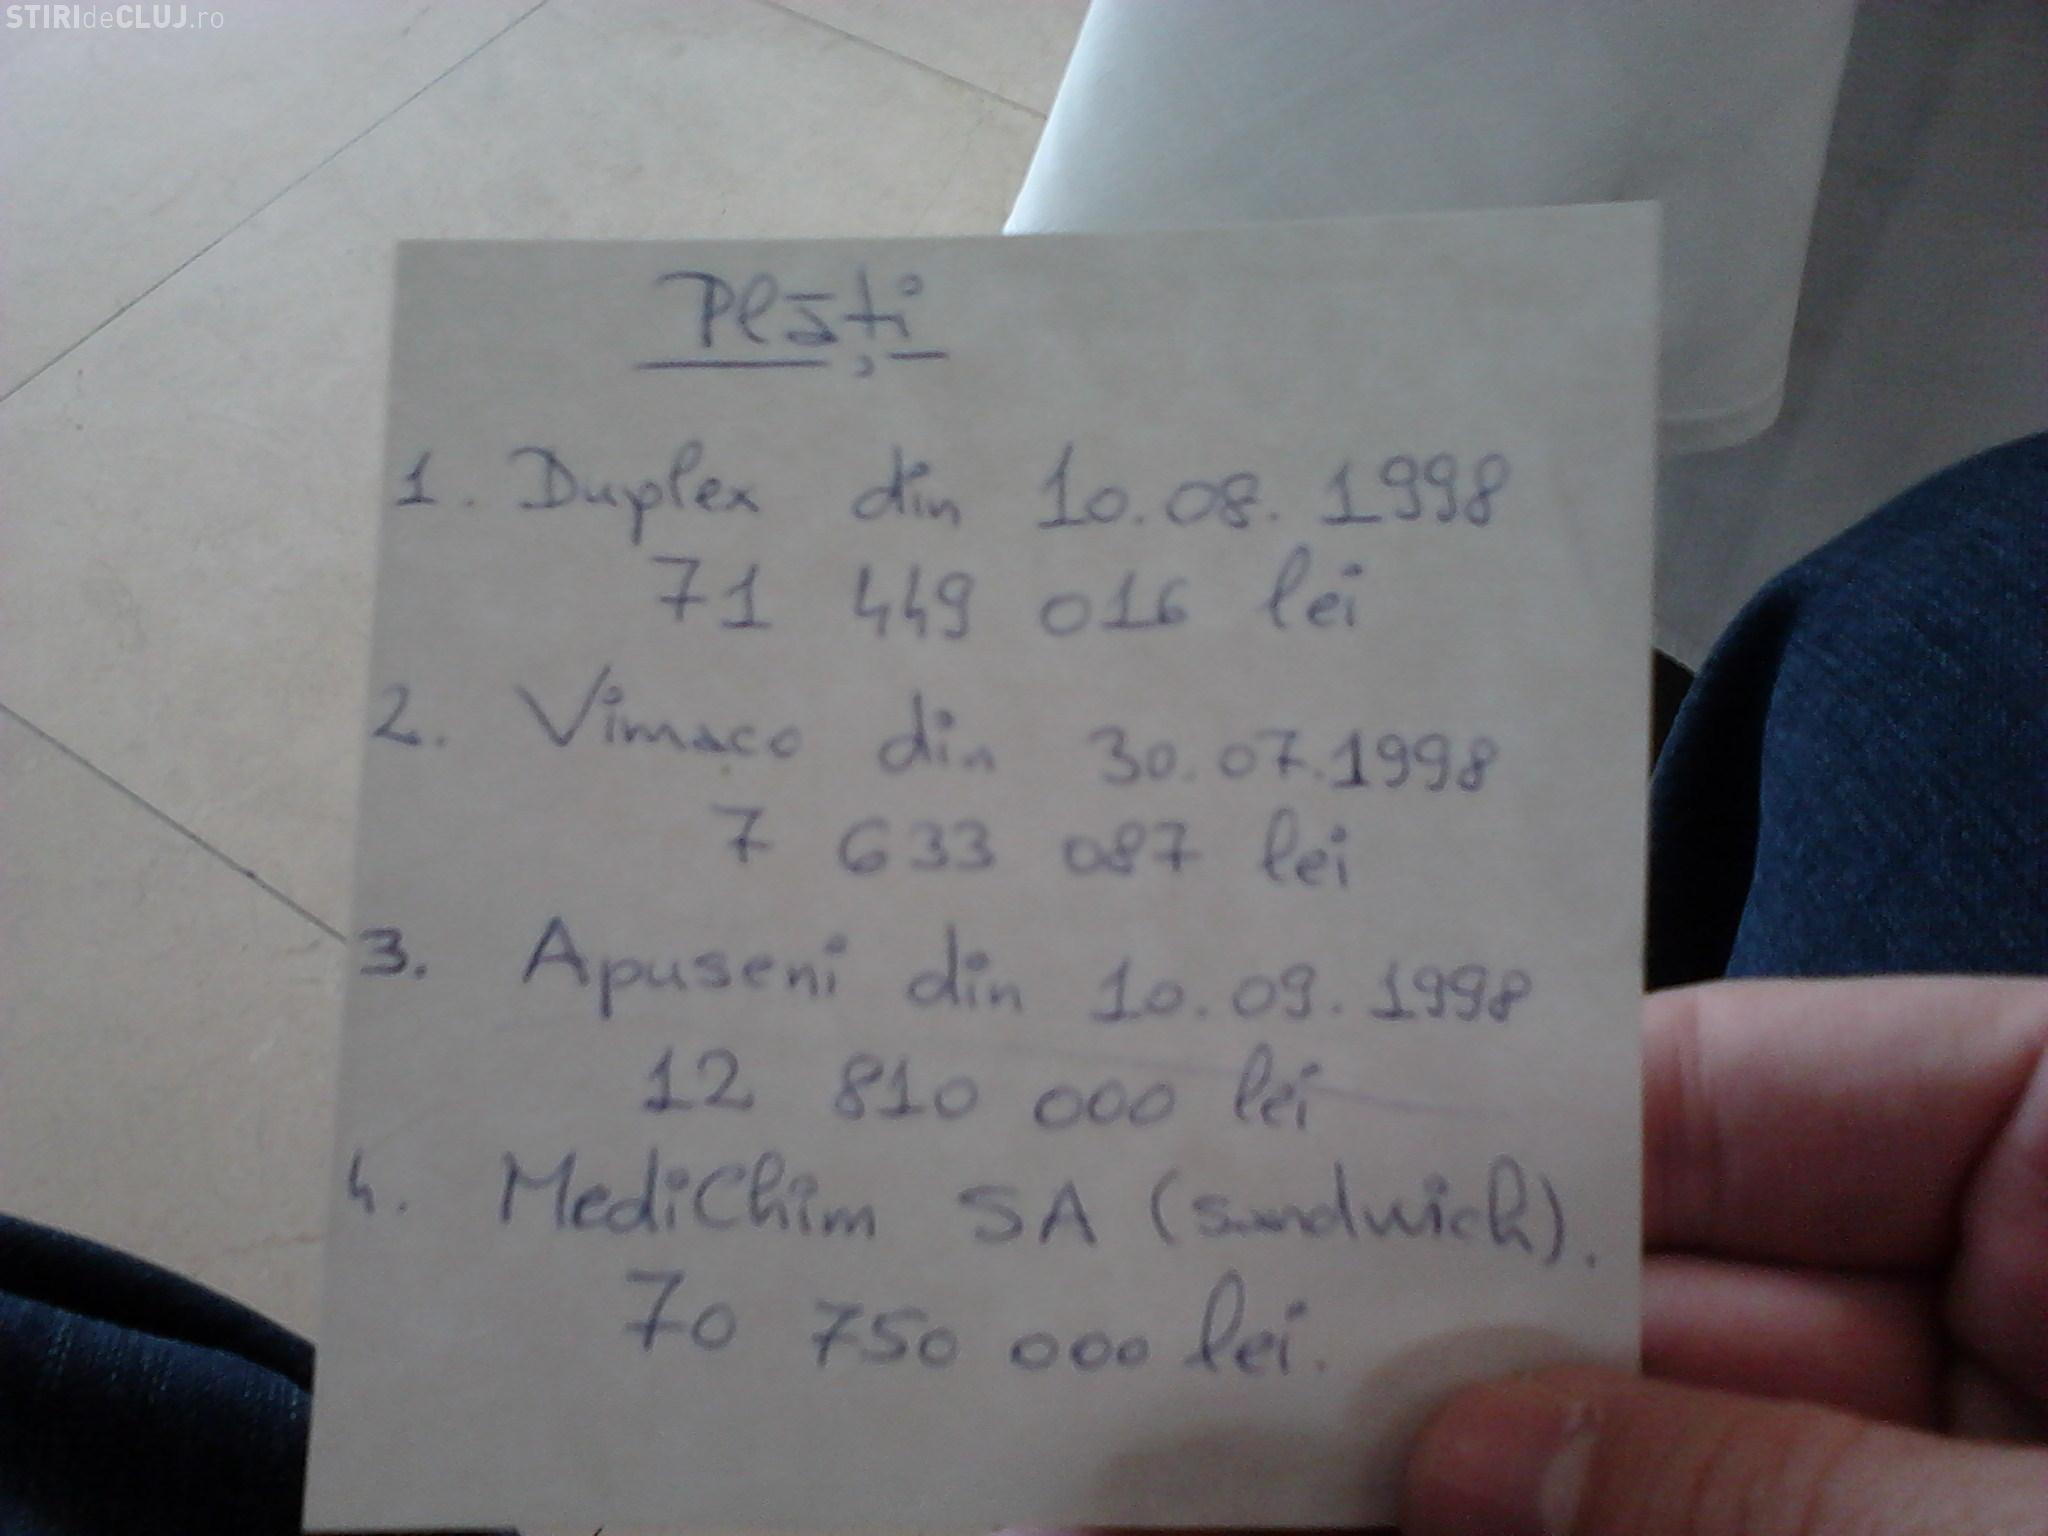 STIRIdeCLUJ.ro
Plăți
1. Duplex din 10.08.1998
71 449 016 lei
2. Vimaco din 30.07.1998
7 633 087 lei
3. Apuseni din 10.09.1998
12 810 000 lei
4. MediChim SA (sandwich).
70 750 000 lei.